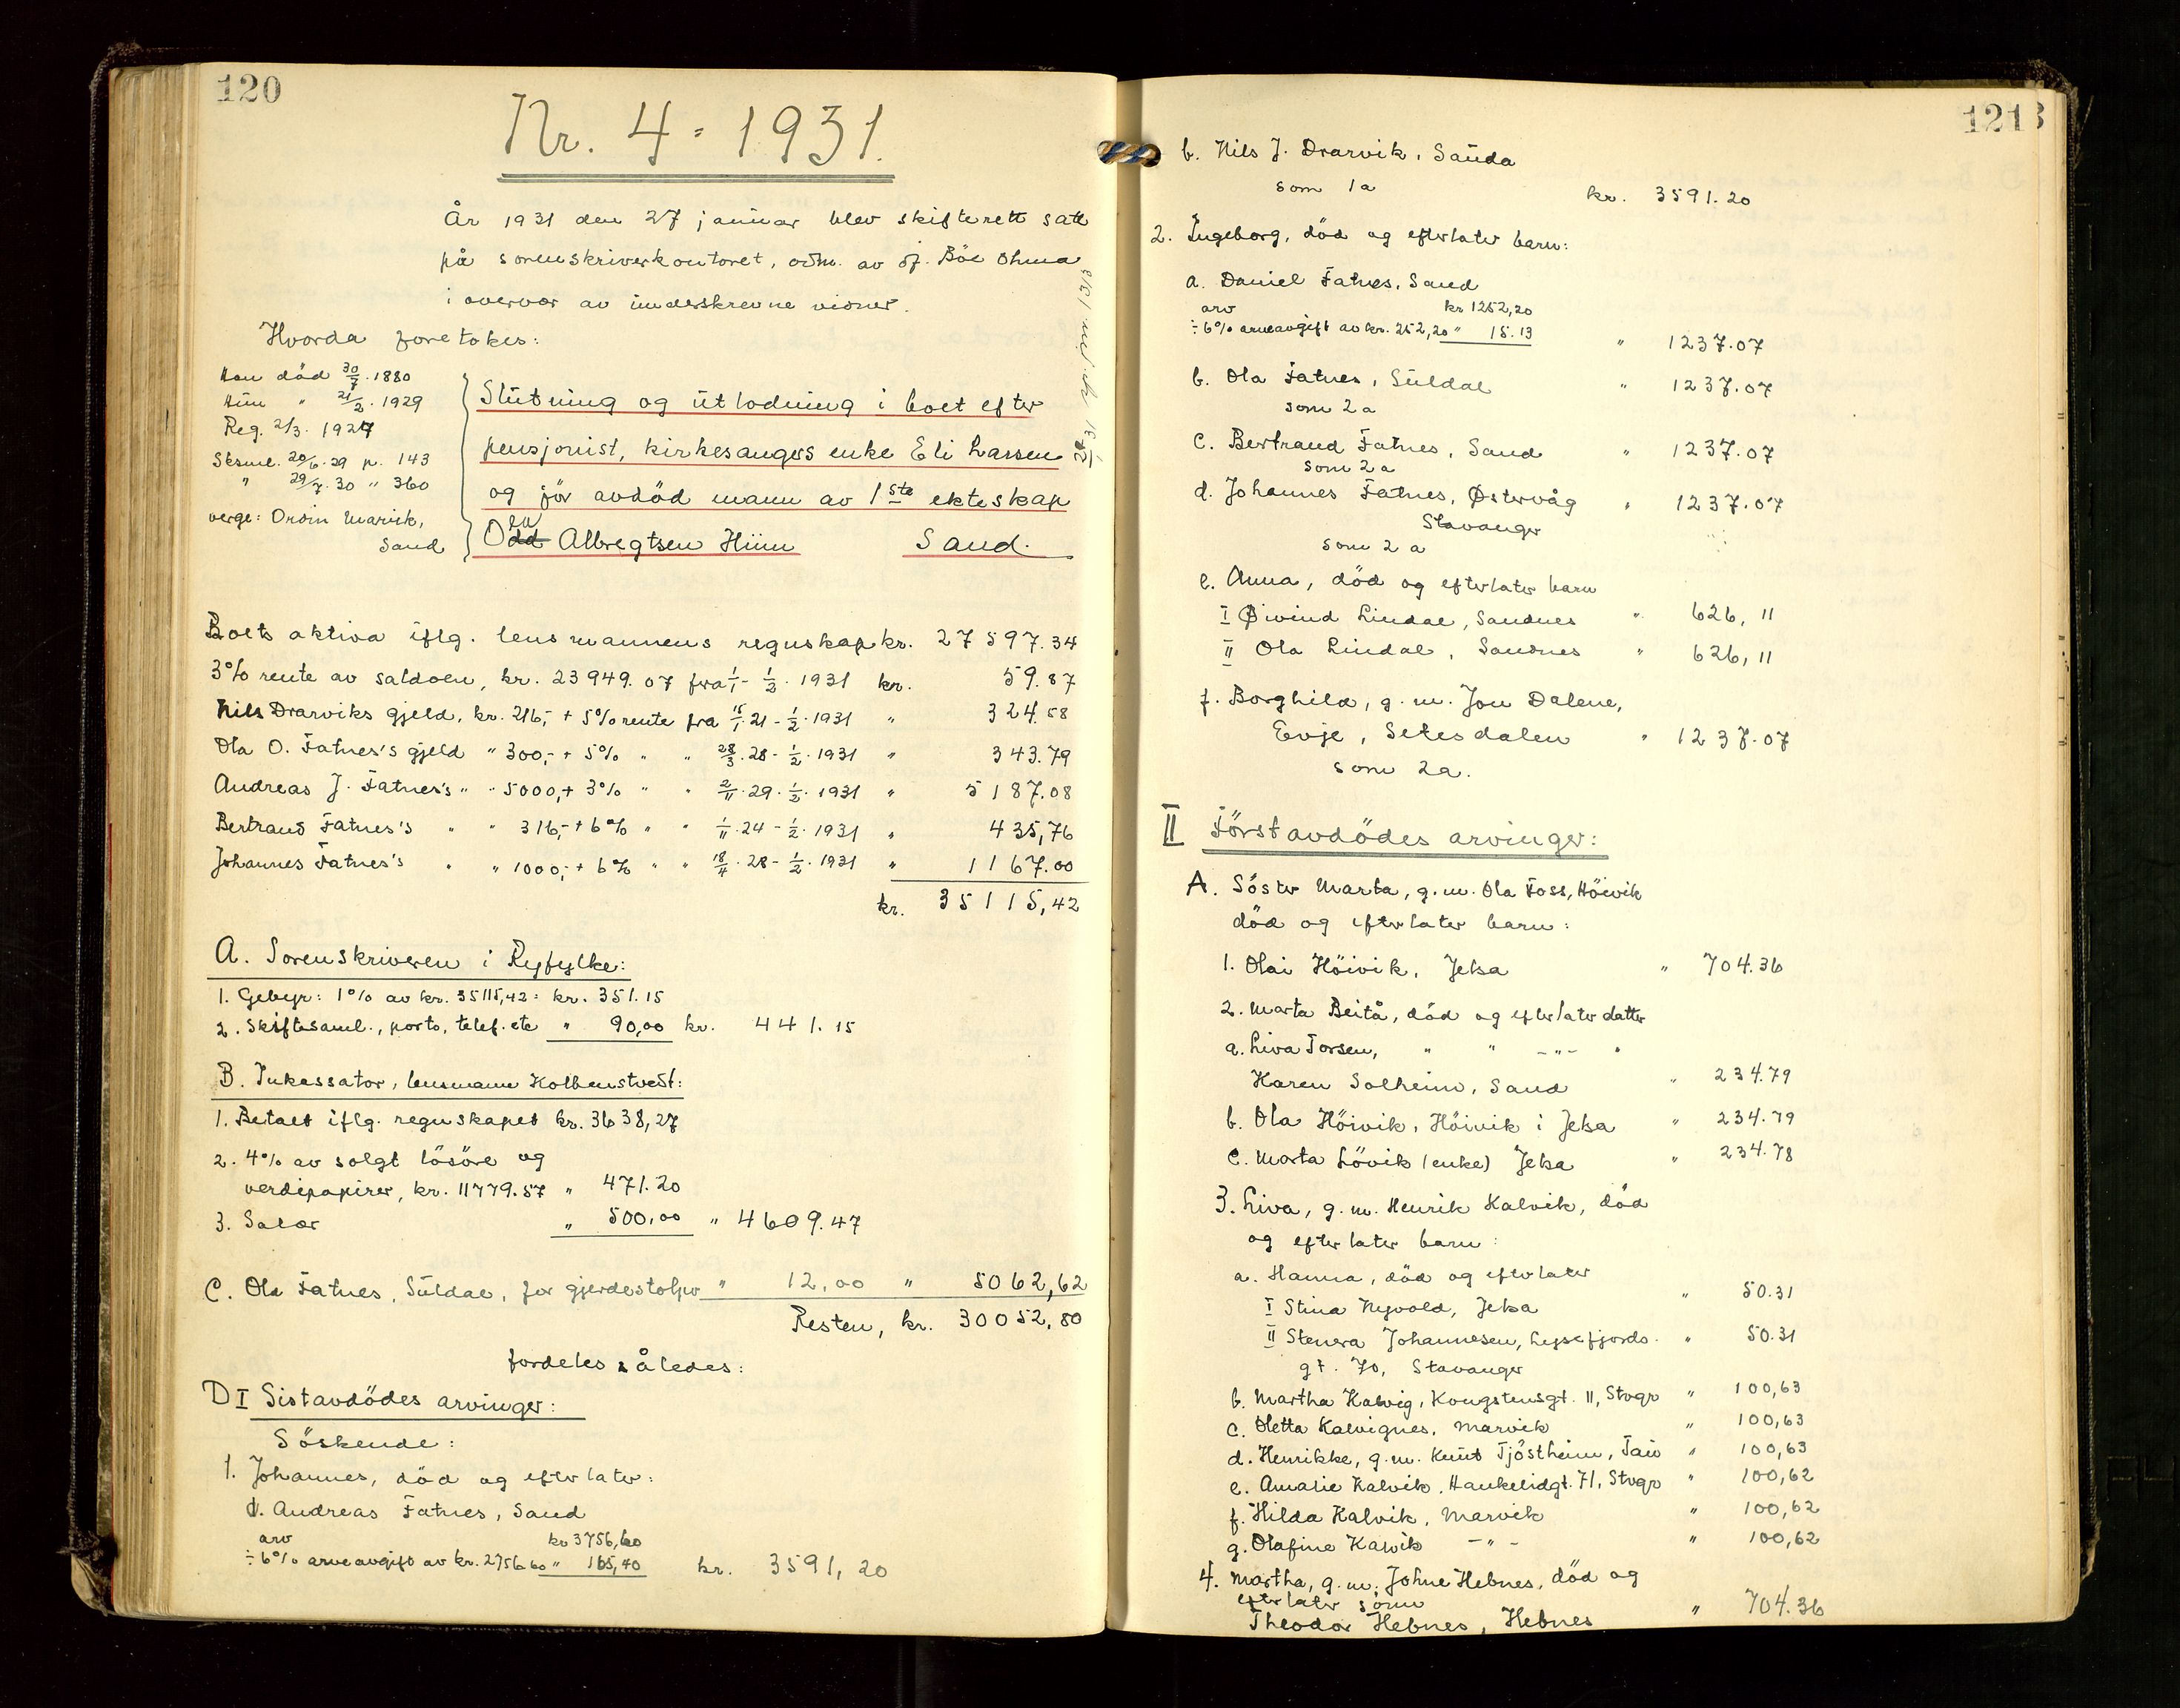 120
Nr. 4 = 1931.
År 1931 den 27 januar blev skifterett satt
på sorenskriverkontoret, adm. av sf. Böe Ohma
i overvær av underskrevne vidner.
Hvorda foretokes:
Han död 30/7. 1880
Hun " 21/2. 1929
Reg. 2/3. 1929
Sksml. 20/6. 29 p. 143
" 29/7. 30 " 360
verge: Marvik,
Sand
Slutning og utlodning i boet efter
pensjonist, kirkesangers enke Eli Larsen
og før avdöd mann av 1ste ekteskap
Ola Albregtsen Hüm Sand.
Boets aktiva iflg. lensmannens regnskap kr. 27597.34
3% rente av saldoen, kr. 23949.07 fra 1/1 - 1/2. 1931 kr. 59.87
Nils Drarviks gjeld, kr. 216,- + 5% rente fra 15/1. 21 - 1/2. 1931 " 324.58
Ola O. Fatnes's gjeld " 300,- + 5% " " 28/3. 28 - 1/2. 1931 " 343.79
Andreas J. Fatnes's " " 5000,+ 3% " " 2/11. 29. 1/2. 1931 " 5187.08
Bertrand Fatnes's " " 316,- + 6% " " 1/11. 24 - 1/2. 1931 " 435,76
Johannes Fatnes's " " 1000,- + 6% " " 18/4. 28 - 1/2. 1931 " 1167.00
kr. 35115,42
A. Sorenskriveren i Ryfylke:
1. Gebyr: 1% av kr. 35115,42 = kr. 351.15
2. Skiftesaml., porto, telef. etc " 90,00 kr. 441.15
B. Inkassator, lensmann Kolbenstvedt:
1. Betalt iflg. regnskapet kr. 3638,27
2. 4% av solgt lösöre og
verdipapirer, kr. 11779.57 " 471.20
3. Salær " 500,00 " 4609.47
C. Ola Fatnes, Suldal, for gjerdestolper " 12,00 " 5062,62
Resten, kr. 30052,80
fordeles således:
D I Sistavdödes arvinger:
Söskende:
1. Johannes, död og efterlater:
a. Andreas Fatnes, Sand
arv kr 3756,60
÷ 6% arveavgift av kr. 2756.60 " 165,40 kr. 3591,20
121
b. Nils J. Drarvik, Sauda
som 1a kr. 3591.20
2. Ingeborg, död og efterlater barn:
a. Daniel Fatnes, Sand
arv kr 1252,20
÷ 6% arveavgift av kr. 252,20 " 15.13 " 1237.07
b. Ola Fatnes, Suldal " 1237.07
som 2a
c. Bertrand Fatnes, Sand " 1237.07
som 2a
d. Johannes Fatnes, Østervåg " 1237.07
Stavanger
som 2a
e. Anna, död og efterlater barn
I Øivind Lindal, Sandnes " 626,11
II Ola Lindal, Sandnes " 626,11
f. Borghild, g.m. Jon Dalene,
Evje, Setesdalen " 1237.07
som 2a.
II Förstavdödes arvinger:
A. Söster Marta, g.m. Ola Foss, Höivik
död og efterlater barn:
1. Olai Höivik, Jelsa " 704.36
2. Marta Beitå, död og efterlater datter
a. Liva Torsen, " " -"- "
Karen Solheim, Sand " 234.79
b. Ola Höivik, Höivik i Jelsa " 234.79
c. Marta Lövik (enke) Jelsa " 234.78
3. Liva, g.m. Henrik Kalvik, död
og efterlater barn:
a. Hanna, död og efterlater
I Stina Nyvold, Jelsa " 50.31
II Stenera Johannesen, Lysefjords- " 50.31
gt. 70, Stavanger
b. Martha Kalvig, Kongstensgt. 11, Stvgr " 100,63
c. Oletta Kalvignes, Marvik " 100,63
d. Henrikke, g.m. Knut Tjöstheim, Tau " 100,63
e. Amalie Kalvik, Haukelidgt. 71, Stvgr " 100,62
f. Hilda Kalvik, Marvik " 100,62
g. Olafine Kalvik -"- " 100,62
4. Martha, g.m. Johne Hebnes, död og
efterlater sönn
Theodor Hebnes, Hebnes " 704.36